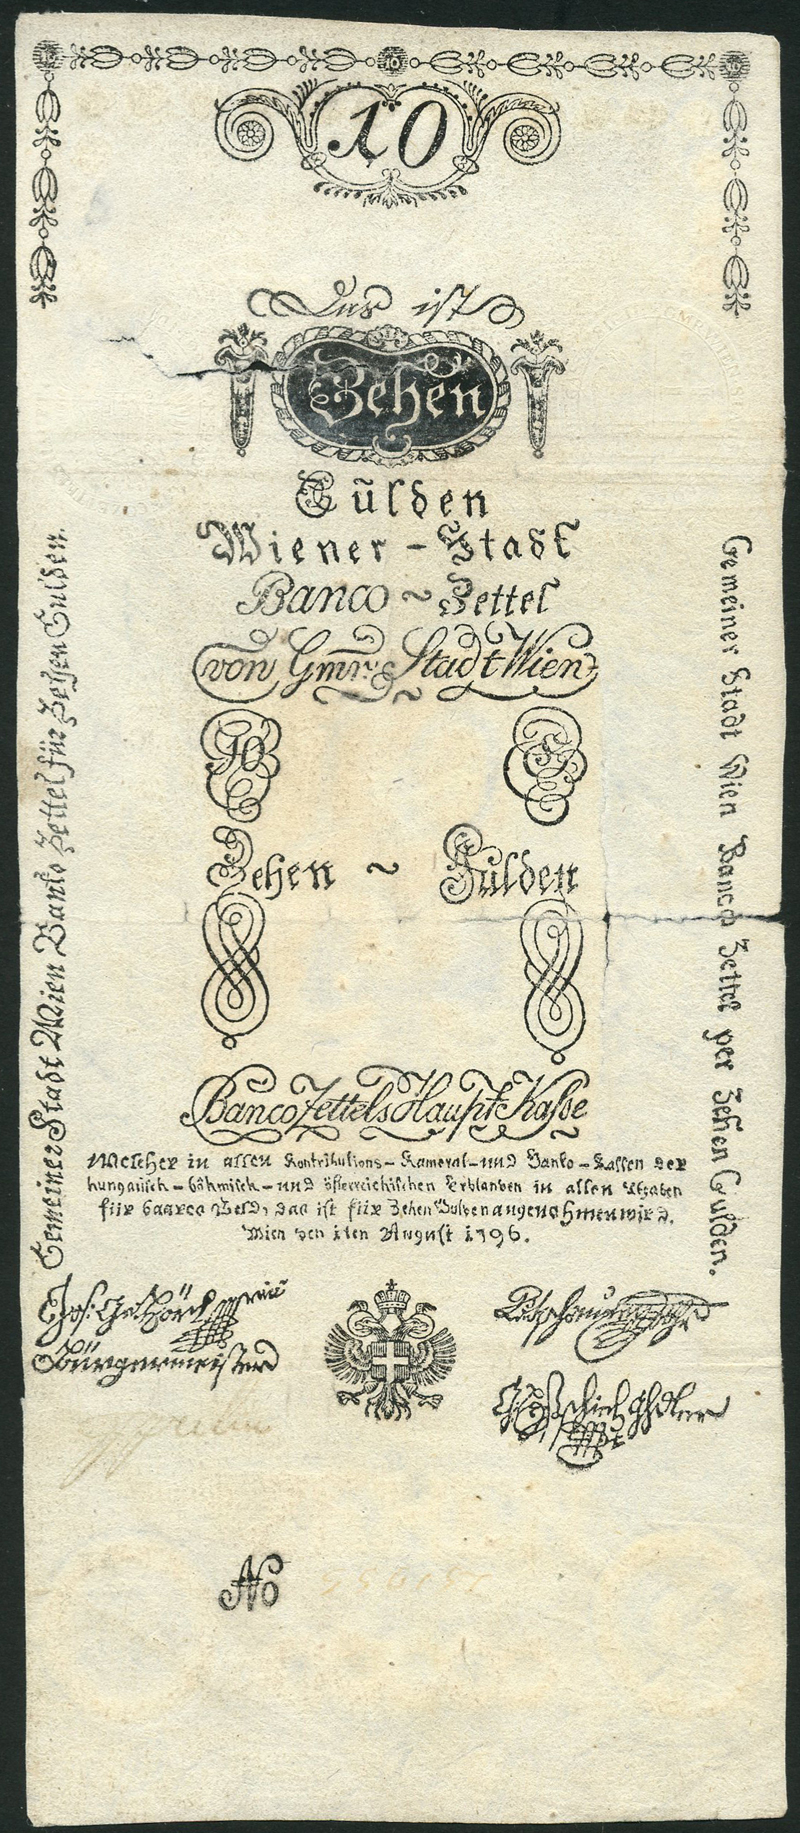 10
Das ist
Zehen
Gulden
Wiener - Stadt
Banco ~ Zettel
von Gmr: Stadt Wien
10
Zehen ~ Gulden
Banco Zettels Haupt Kasse
Welcher in allen Kontributions - Kameral - und Banko - Kassen der
hungarisch - böhmisch - und österreichischen Erblanden in allen Abgaben
für baares Geld, das ist für Zehen Gulden angenohmen wird.
Wien den 1ten August 1796.
Gemeiner Stadt Wien Banko Zettel für Zehen Gulden.
Gemeiner Stadt Wien Banco Zettel per Zehen Gulden.
Jos:
Bürgermeister
No